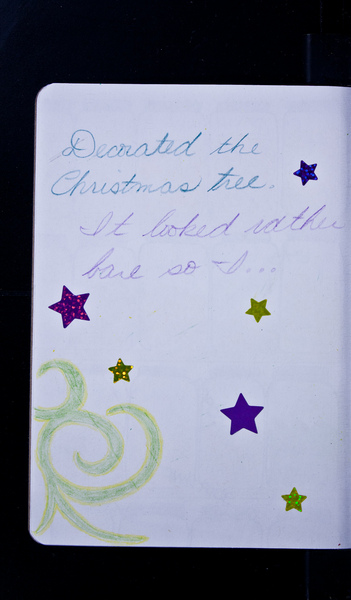 Decorated the
Christmas tree.
It looked rather
bare so I...